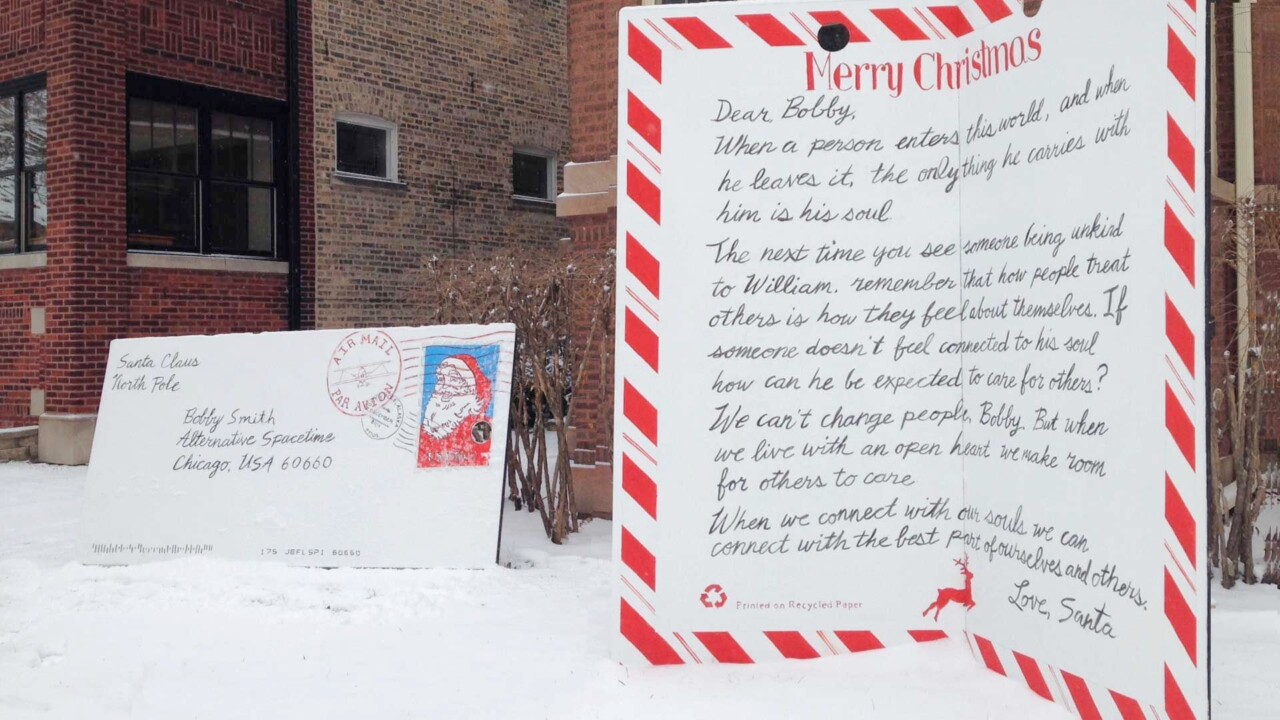 Santa Claus
North Pole
Bobby Smith
Alternative Spacetime
Chicago, USA 60660
AIR MAIL
PAR AVION
Merry Christmas
Dear Bobby,
When a person enters this world, and when
he leaves it, the only thing he carries with
him is his soul
The next time you see someone being unkind
to William, remember that how people treat
others is how they feel about themselves. If
someone doesn't feel connected to his soul
how can he be expected to care for others?
We can't change people, Bobby. But when
we live with an open heart we make room
for others to care
When we connect with our souls we can
connect with the best part of ourselves and others.
Love, Santa
Printed on Recycled Paper